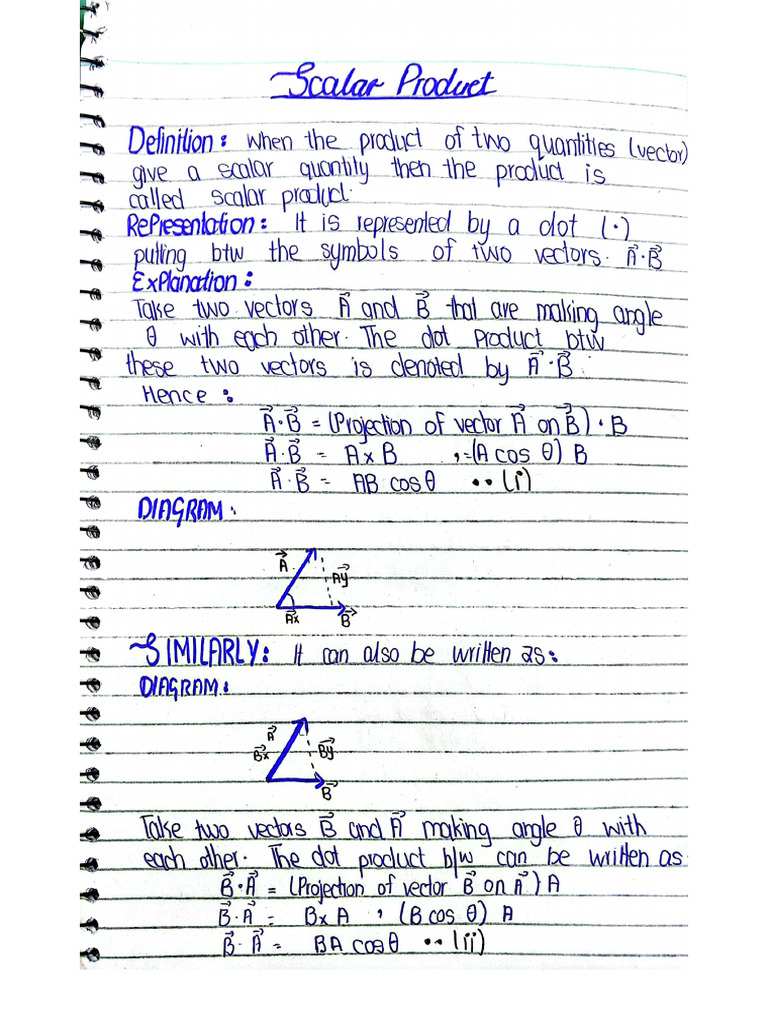 Scalar Product
Definition: when the product of two quantities (vector)
give a scalar quantity then the product is
called scalar product.
RePresentation: It is represented by a dot (·)
putting btw the symbols of two vectors. A⃗·B⃗
ExPlanation:
Take two vectors A⃗ and B⃗ that are making angle
θ with each other. The dot product btw
these two vectors is denoted by A⃗·B⃗.
Hence:
A⃗·B⃗ = (Projection of vector A⃗ on B⃗)·B
A⃗·B⃗ = Ax B , =(A cos θ) B
A⃗·B⃗ = AB cosθ ··(i)
DIAGRAM:
A⃗
Ay⃗
Ax⃗
B⃗
SIMILARLY: It can also be written as:
DIAGRAM:
A⃗
Bx⃗ By⃗
B⃗
Take two vectors B⃗ and A⃗ making angle θ with
each other. The dot product b/w can be written as
B⃗·A⃗ = (Projection of vector B⃗ on A⃗) A
B⃗·A⃗ = Bx A , (B cos θ) A
B⃗·A⃗ = BA cosθ ··(ii)